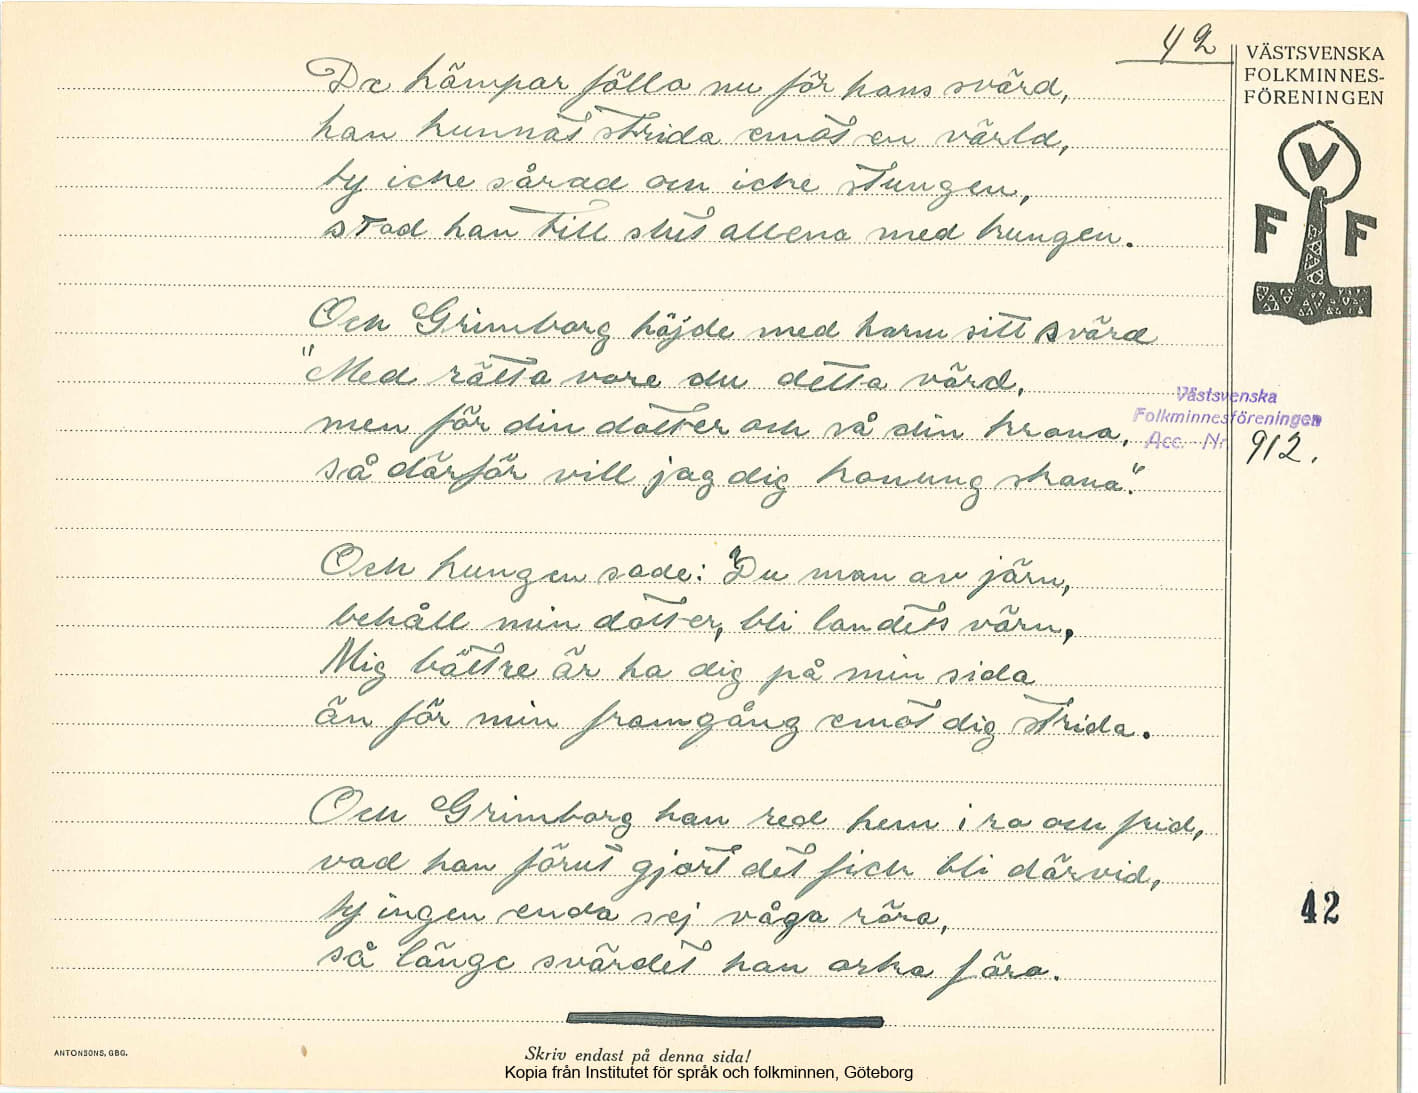 42
VÄSTSVENSKA
FOLKMINNES-
FÖRENINGEN
V
F F
De kämpar fölla nu för hans svärd,
han kunnat strida emot en värld,
ty icke sårad och icke stungen,
stod han till slut allena med kungen.
Och Grimborg höjde med harm sitt svärd
"Med rätta vore du detta värd,
men för din dotter och så din krona,
så därför vill jag dig konung skona."
Västsvenska
Folkminnesföreningen
Acc. Nr 912.
Och kungen sade: "Du man av järn,
behåll min dotter, bli landets värn,
Mig bättre är ha dig på min sida
än för min framgång emot dig strida.
Och Grimborg han red hem i ro och frid,
vad han förut gjort det fick bli därvid,
ty ingen enda sej våga röra,
så länge svärdet han orka föra.
42
ANTONSONS, GBG.
Skriv endast på denna sida!
Kopia från Institutet för språk och folkminnen, Göteborg